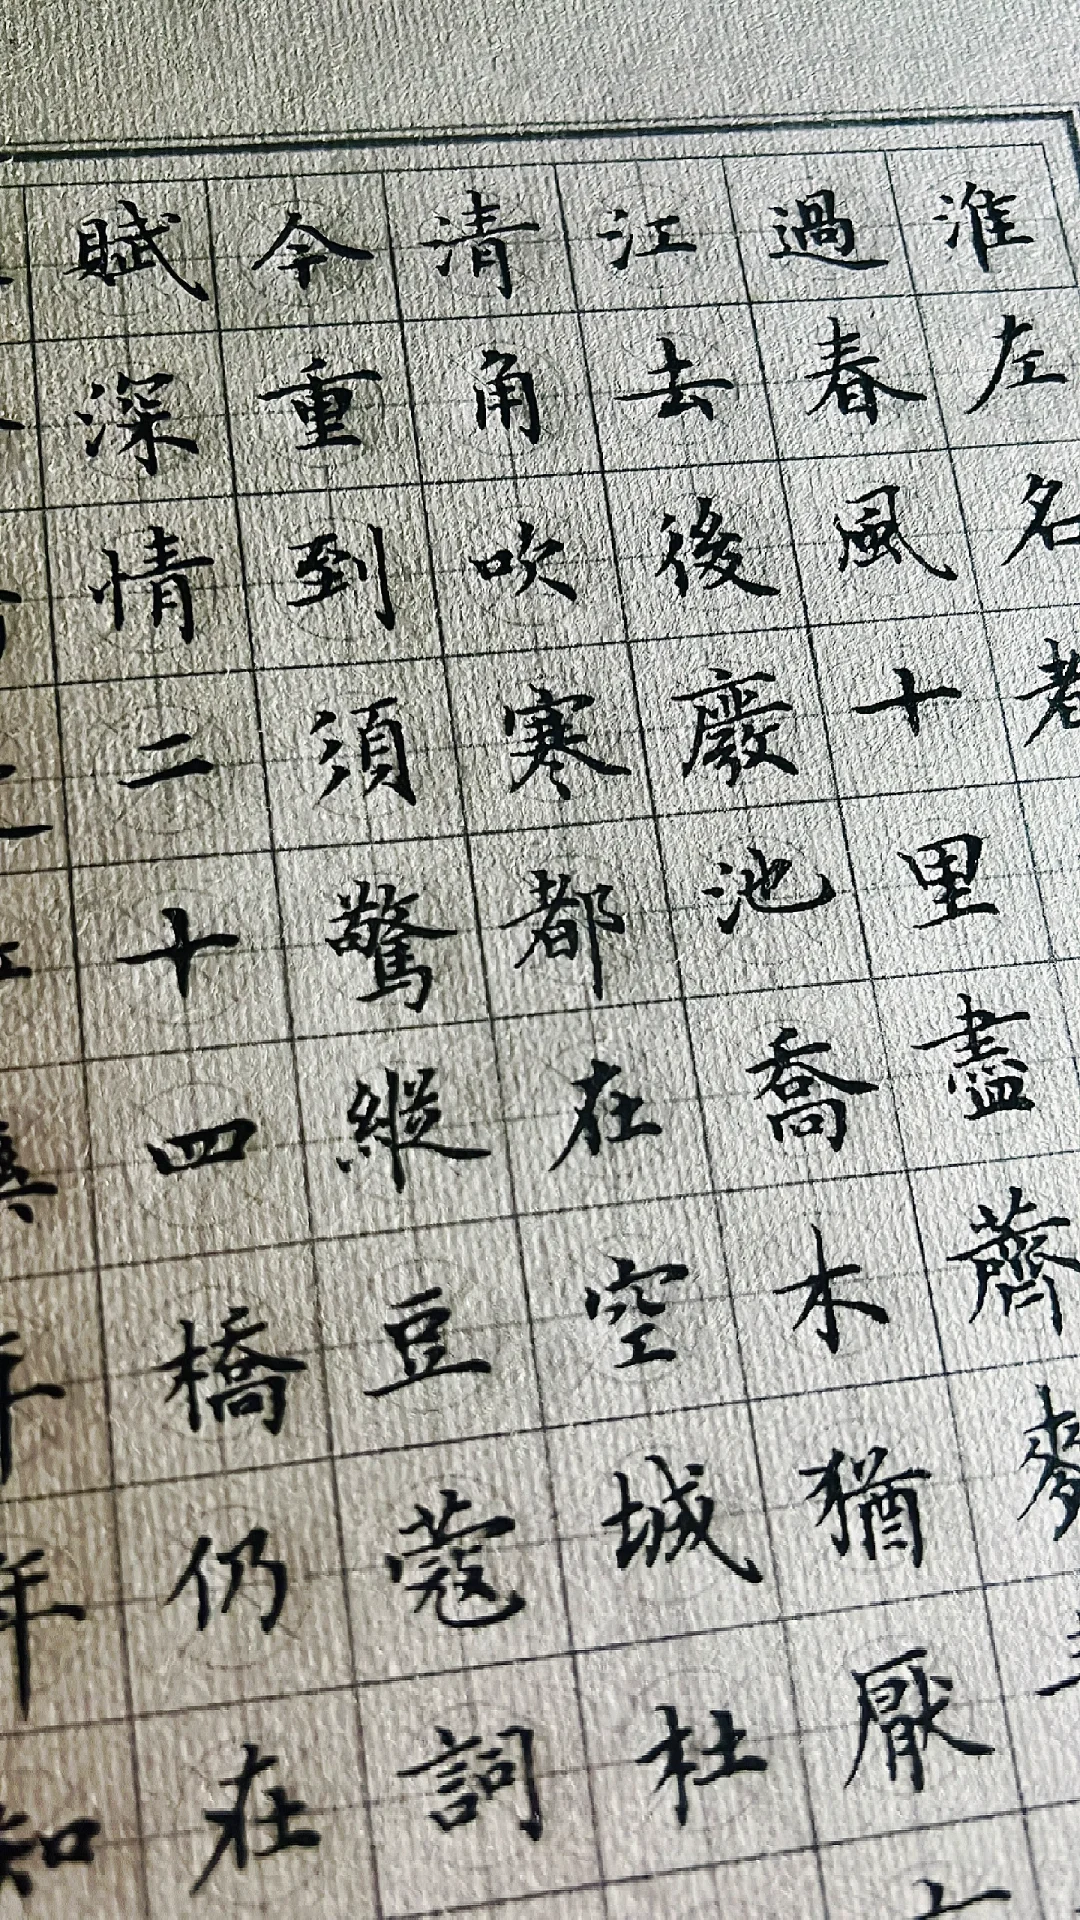 淮左名
過春風十里盡薺麥
江去後廢池喬木猶厭
清角吹寒都在空城杜
今重到須驚縱豆蔻詞
賦深情二十四橋仍在
年知